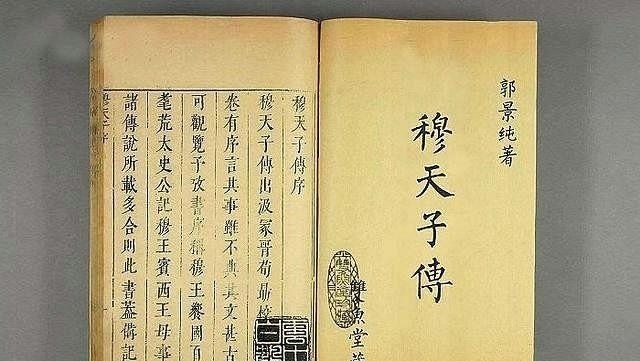 郭景纯著
穆天子傳
雙魚堂
穆天子傳序
穆天子傳出汲冢晉荀勗校
卷有序言其事雖不典其文甚古
可觀覽予攷書序稱穆王饗國百
耄荒太史公記穆王賓西王母事
諸傳說所載多合則此書蓋備記
穆天子序